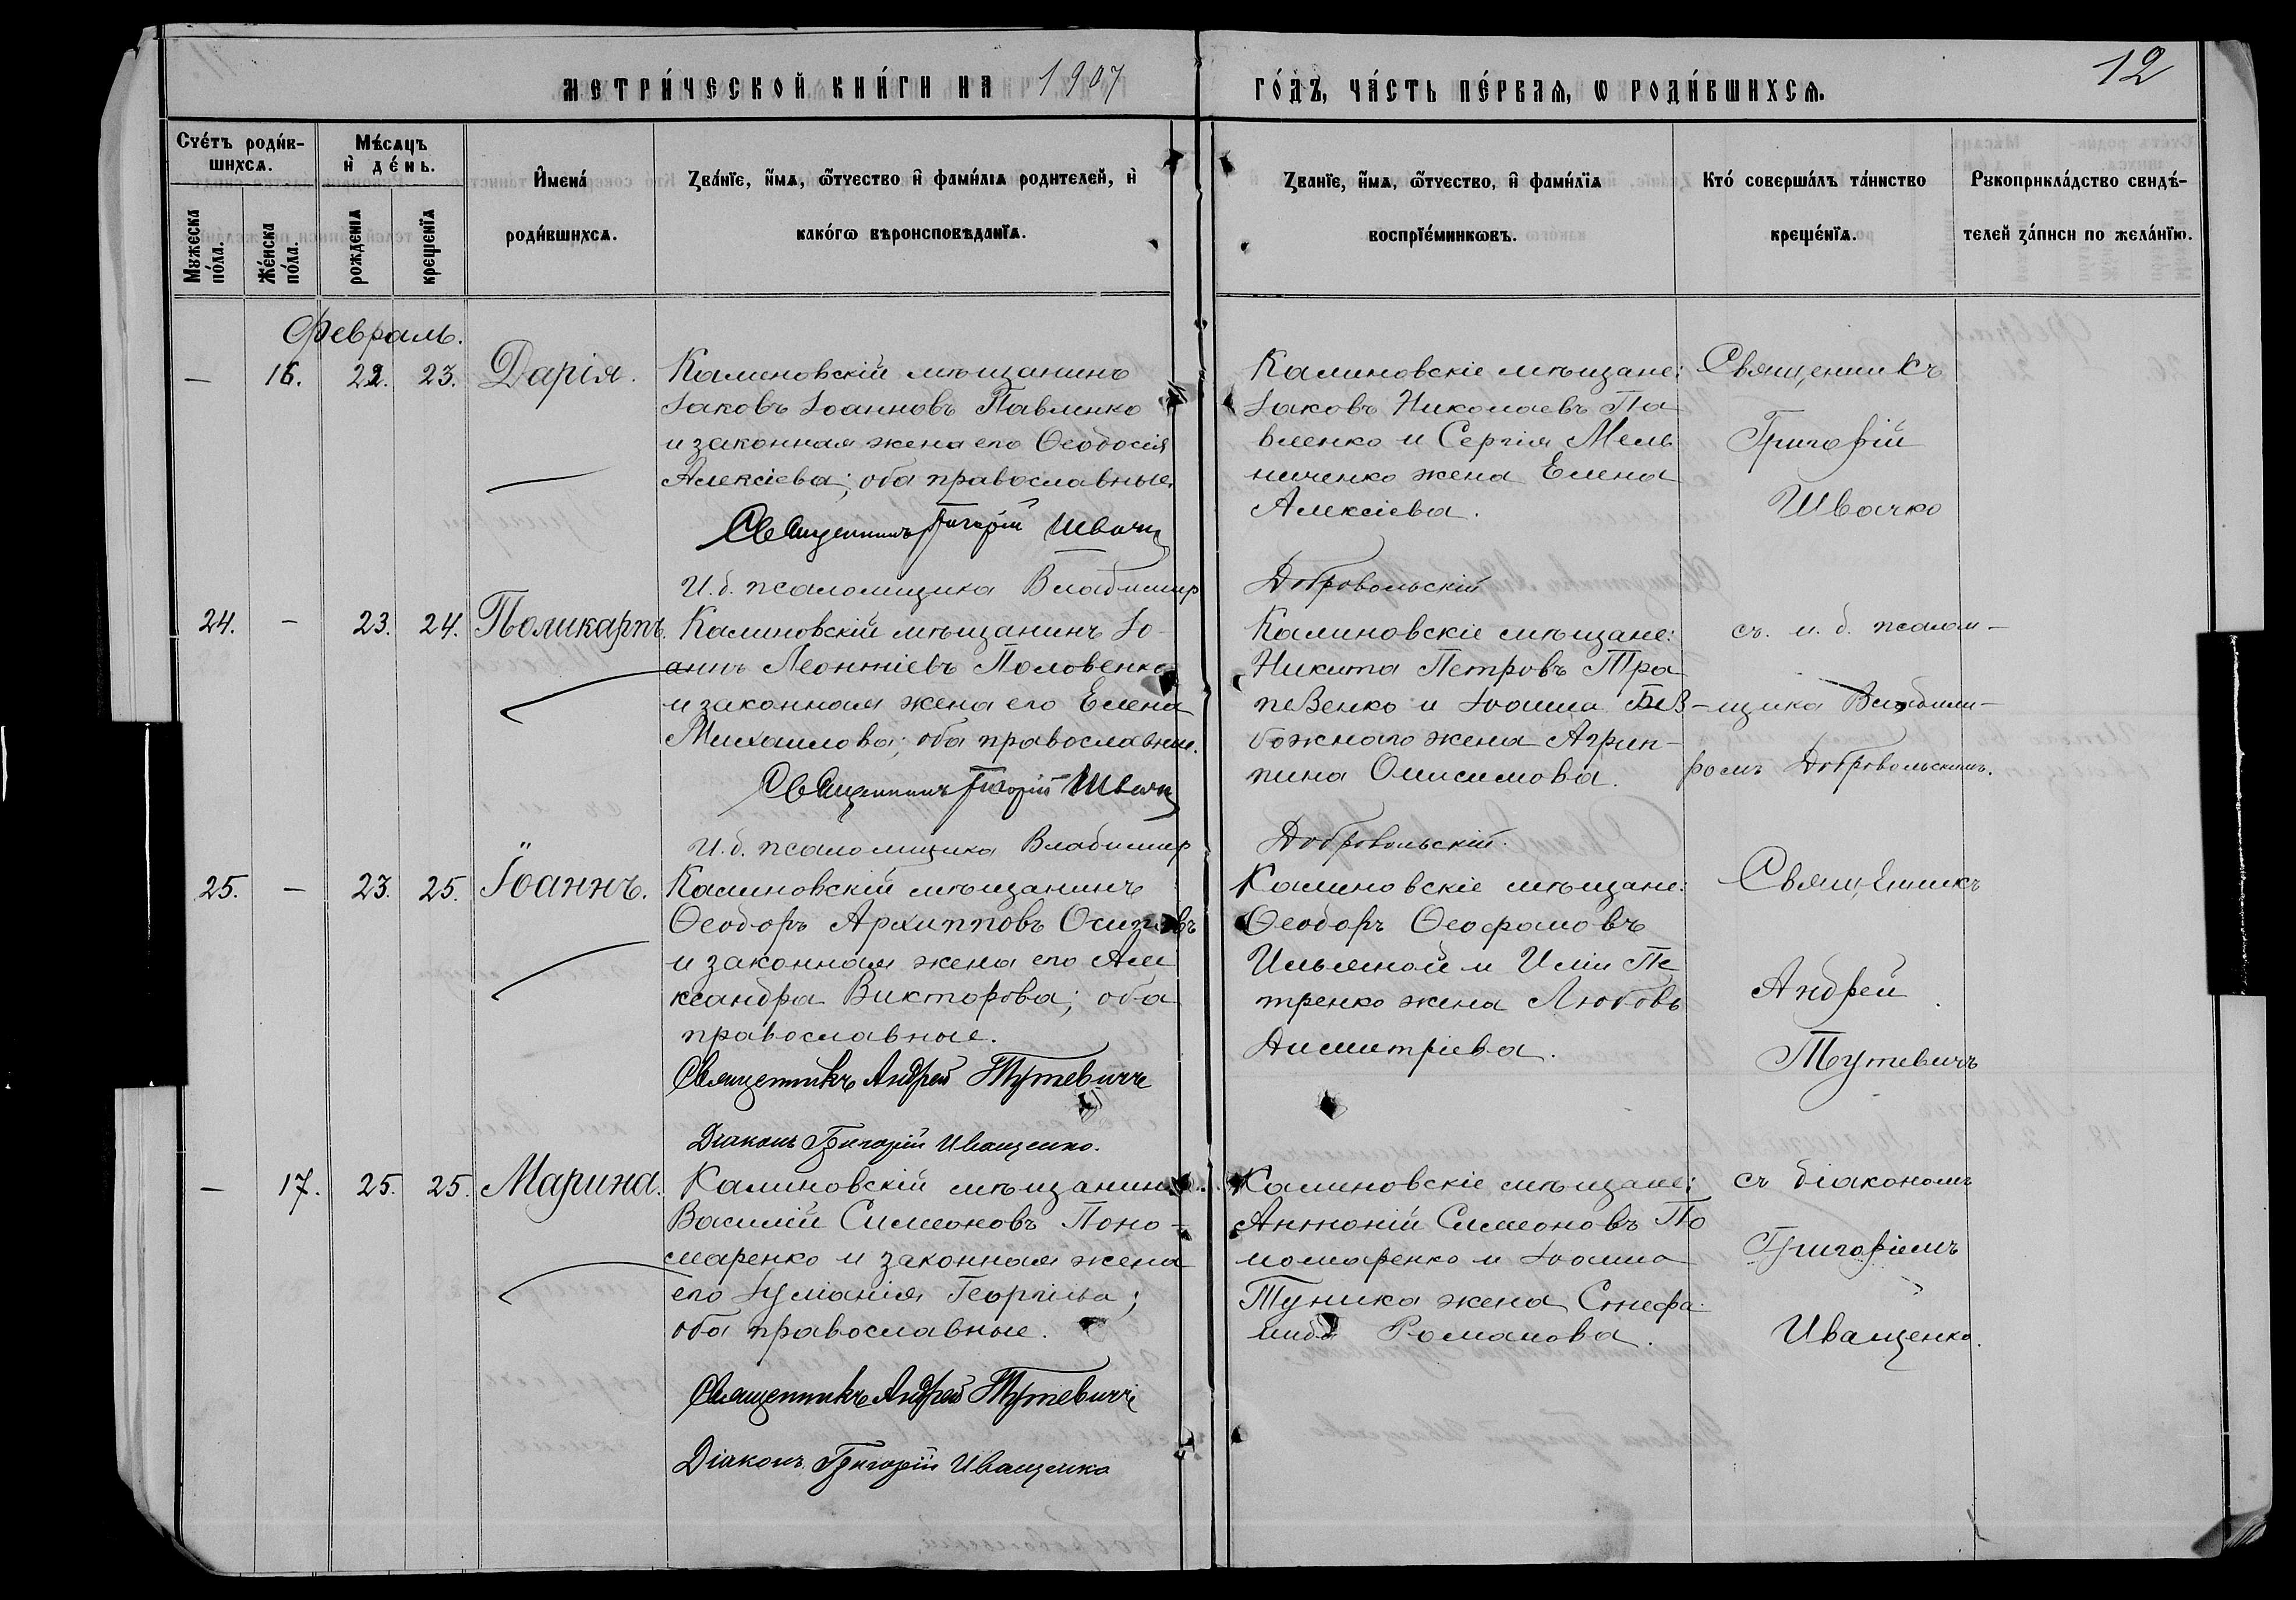 МЕТРИ́ЧЕСКОЙ КНИ́ГИ НА 1907 ГО́ДЪ, ЧА́СТЬ ПЕ́РВАЯ, Ѡ РОДИ́ВШИХСЯ.
12
Счетъ роди́в-
шихсѧ.
Мужеска по́ла.
Же́нска по́ла.
Мѣ́сѧцъ
и҆ де́нь.
рожденїѧ
крещенїѧ
И҆мена́
роди́вшихсѧ.
Зва́нїе, и҆́мѧ, ѿтчество и҆ фами́лїѧ родителей, и҆
како́гѡ вѣроисповѣданїѧ.
Зва́нїе, и҆́мѧ, ѿтчество, и҆ фами́лїѧ
воспрїе́мникѡвъ.
Кто́ соверша́лъ та́инство
креще́нїѧ.
Рꙋкоприкла́дство свидѣ́-
телей за́писи по жела́нїю.
Февраль.
— 16. 22. 23. Дарія.
Калиновскій мѣщанинъ
Іаковъ Іоанновъ Павленко
и законная жена его Ѳеодосія
Алексіева; оба православные.
Священникъ Григорій Швачко
И.д. псаломщика Владимир Добровольскій
Калиновскіе мѣщане:
Іаковъ Николаевъ Па
вленко и Сергія Мель
ниченко жена Елена
Алексіева.
Священникъ
Григорій
Швачко
24. — 23. 24. Поликарпъ.
Калиновскій мѣщанинъ Іо-
аннъ Леонтіевъ Половенко
и законная жена его Елена
Михаилова; оба православные.
Священникъ Григорій Швачко
И.д. псаломщика Владимир Добровольскій.
Калиновскіе мѣщане:
Никита Петровъ Тра
пезенко и Іоанна Без-
божнаго жена Агрип-
пина Онисимова.
съ. и. д. псалом-
щика Владими-
ромъ Добровольскимъ.
25. — 23. 25. Іоаннъ.
Калиновскій мѣщанинъ
Ѳеодоръ Архипповъ Осиповъ
и законная жена его Але
ксандра Викторова; оба
православные.
Священникъ Андрей Тутевичъ
Діаконъ Григорій Иващенко.
Калиновскіе мѣщане:
Ѳеодоръ Ѳеофановъ
Ильяной и Иліи Пе
тренко жена Любовь
Димитріева.
Священникъ
Андрей
Тутевичъ
— 17. 25. 25. Марина.
Калиновскій мѣщанинъ
Василій Симеоновъ Поно-
маренко и законная жена
его Іуліанія Георгіева;
оба православные.
Священникъ Андрей Тутевичъ
Діаконъ Григорій Иващенко
Калиновскіе мѣщане:
Антоній Симеоновъ По
номаренко и Іоанна
Туника жена Стефа
нида Романова.
съ діакономъ
Григоріемъ
Иващенко.